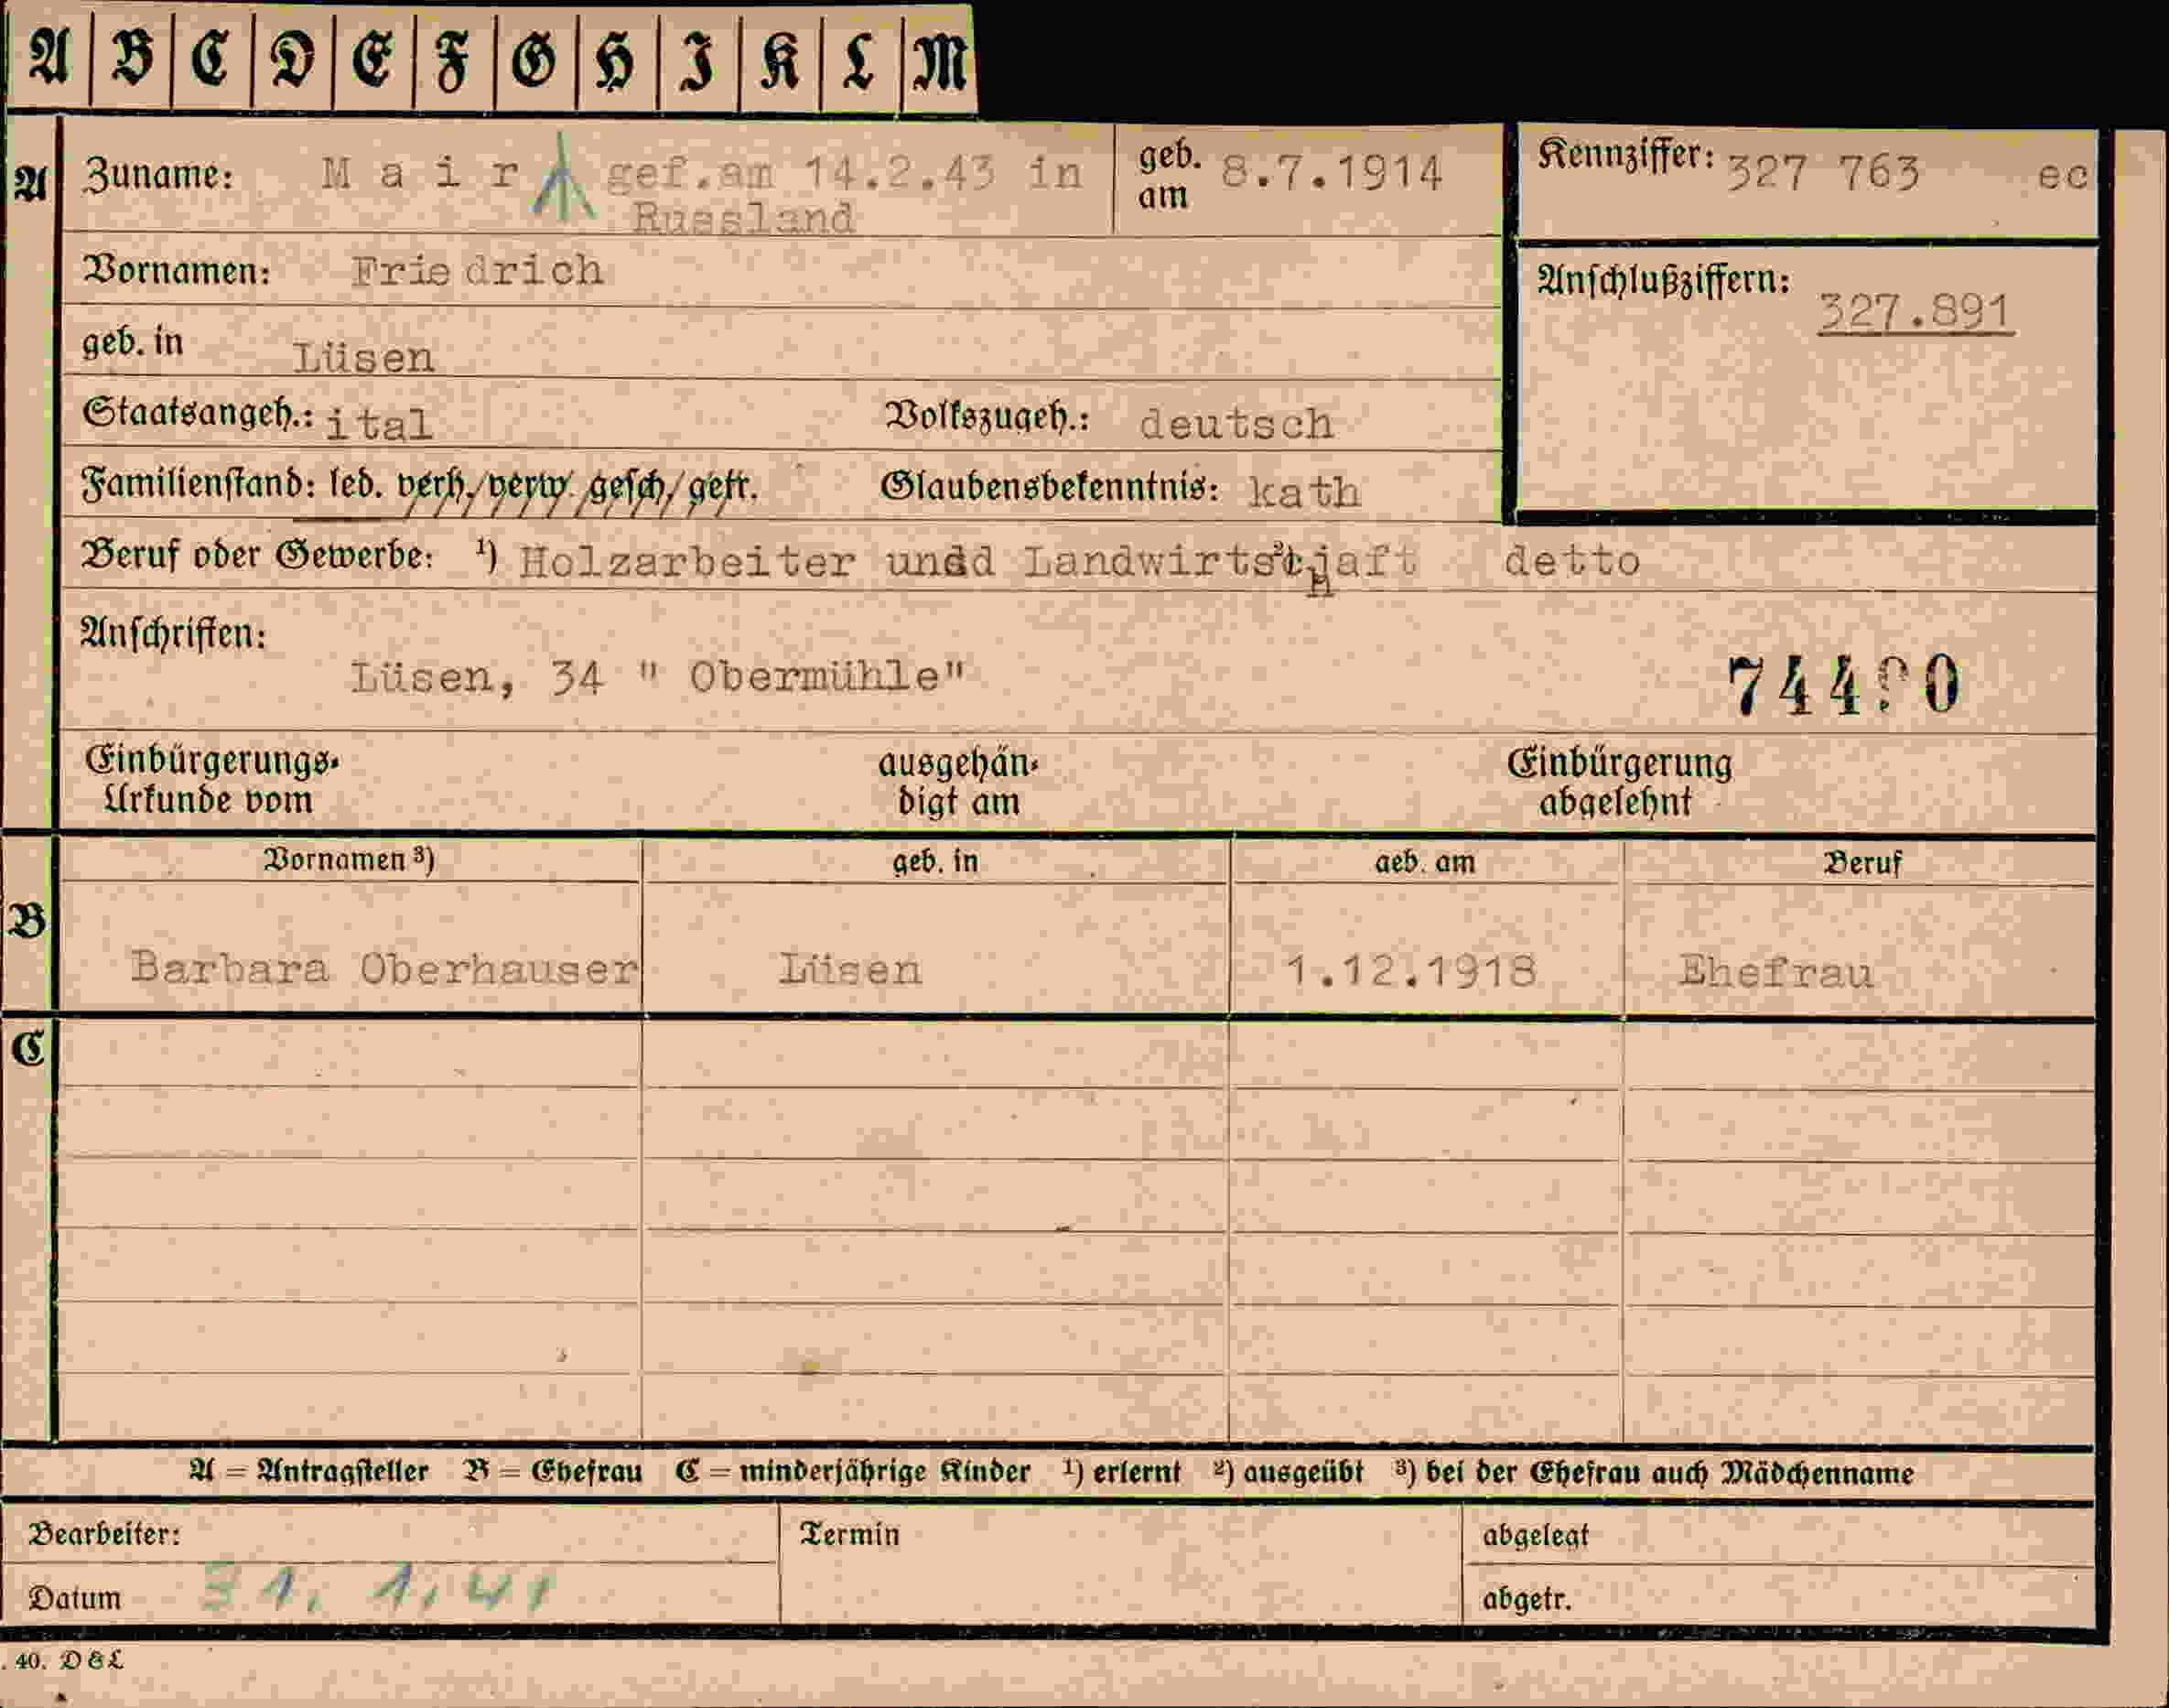 A B C D E F G H I K L M
A Zuname: Mair gef.am 14.2.43 in geb. am 8.7.1914 Kennziffer: 327 763 ec
Russland
Vornamen: Friedrich Anschlußziffern:
327.891
geb. in Lüsen
Staatsangeh.: ital Volkszugeh.: deutsch
Familienstand: led. verh./verw. gesch/getr. Glaubensbekenntnis: kath
Beruf oder Gewerbe: ¹) Holzarbeiter und Landwirtschaft ²) detto
Anschriften:
Lüsen, 34 " Obermühle"
Einbürgerungs- ausgehän- Einbürgerung
Urkunde vom digt am abgelehnt
Vornamen ³) geb. in geb. am Beruf
B
Barbara Oberhauser Lüsen 1.12.1918 Ehefrau
C
A = Antragsteller B = Ehefrau C = minderjährige Kinder ¹) erlernt ²) ausgeübt ³) bei der Ehefrau auch Mädchenname
Bearbeiter: Termin abgelegt
Datum 31. 1. 41 abgetr.
. 40. D & L